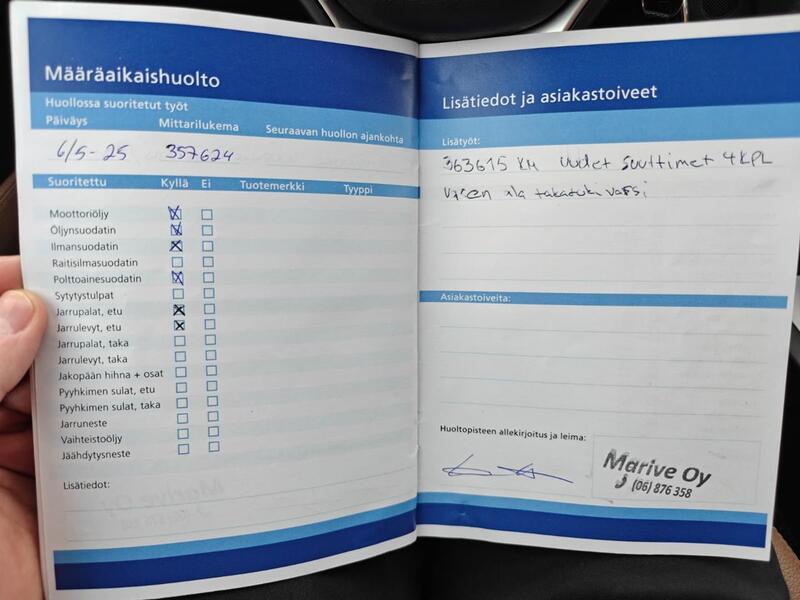 Määräaikaishuolto
Huollossa suoritetut työt
Päiväys Mittarilukema Seuraavan huollon ajankohta
6/5-25 357624
Suoritettu Kyllä Ei Tuotemerkki Tyyppi
Moottoriöljy
Öljynsuodatin
Ilmansuodatin
Raitisilmasuodatin
Polttoainesuodatin
Sytytystulpat
Jarrupalat, etu
Jarrulevyt, etu
Jarrupalat, taka
Jarrulevyt, taka
Jakopään hihna + osat
Pyyhkimen sulat, etu
Pyyhkimen sulat, taka
Jarruneste
Vaihteistoöljy
Jäähdytysneste
Lisätiedot:
Lisätiedot ja asiakastoiveet
Lisätyöt:
363615 KM uudet suuttimet 4KPL
ala takatukivarsi
Asiakastoiveita:
Huoltopisteen allekirjoitus ja leima:
Marive Oy
(06) 876 358